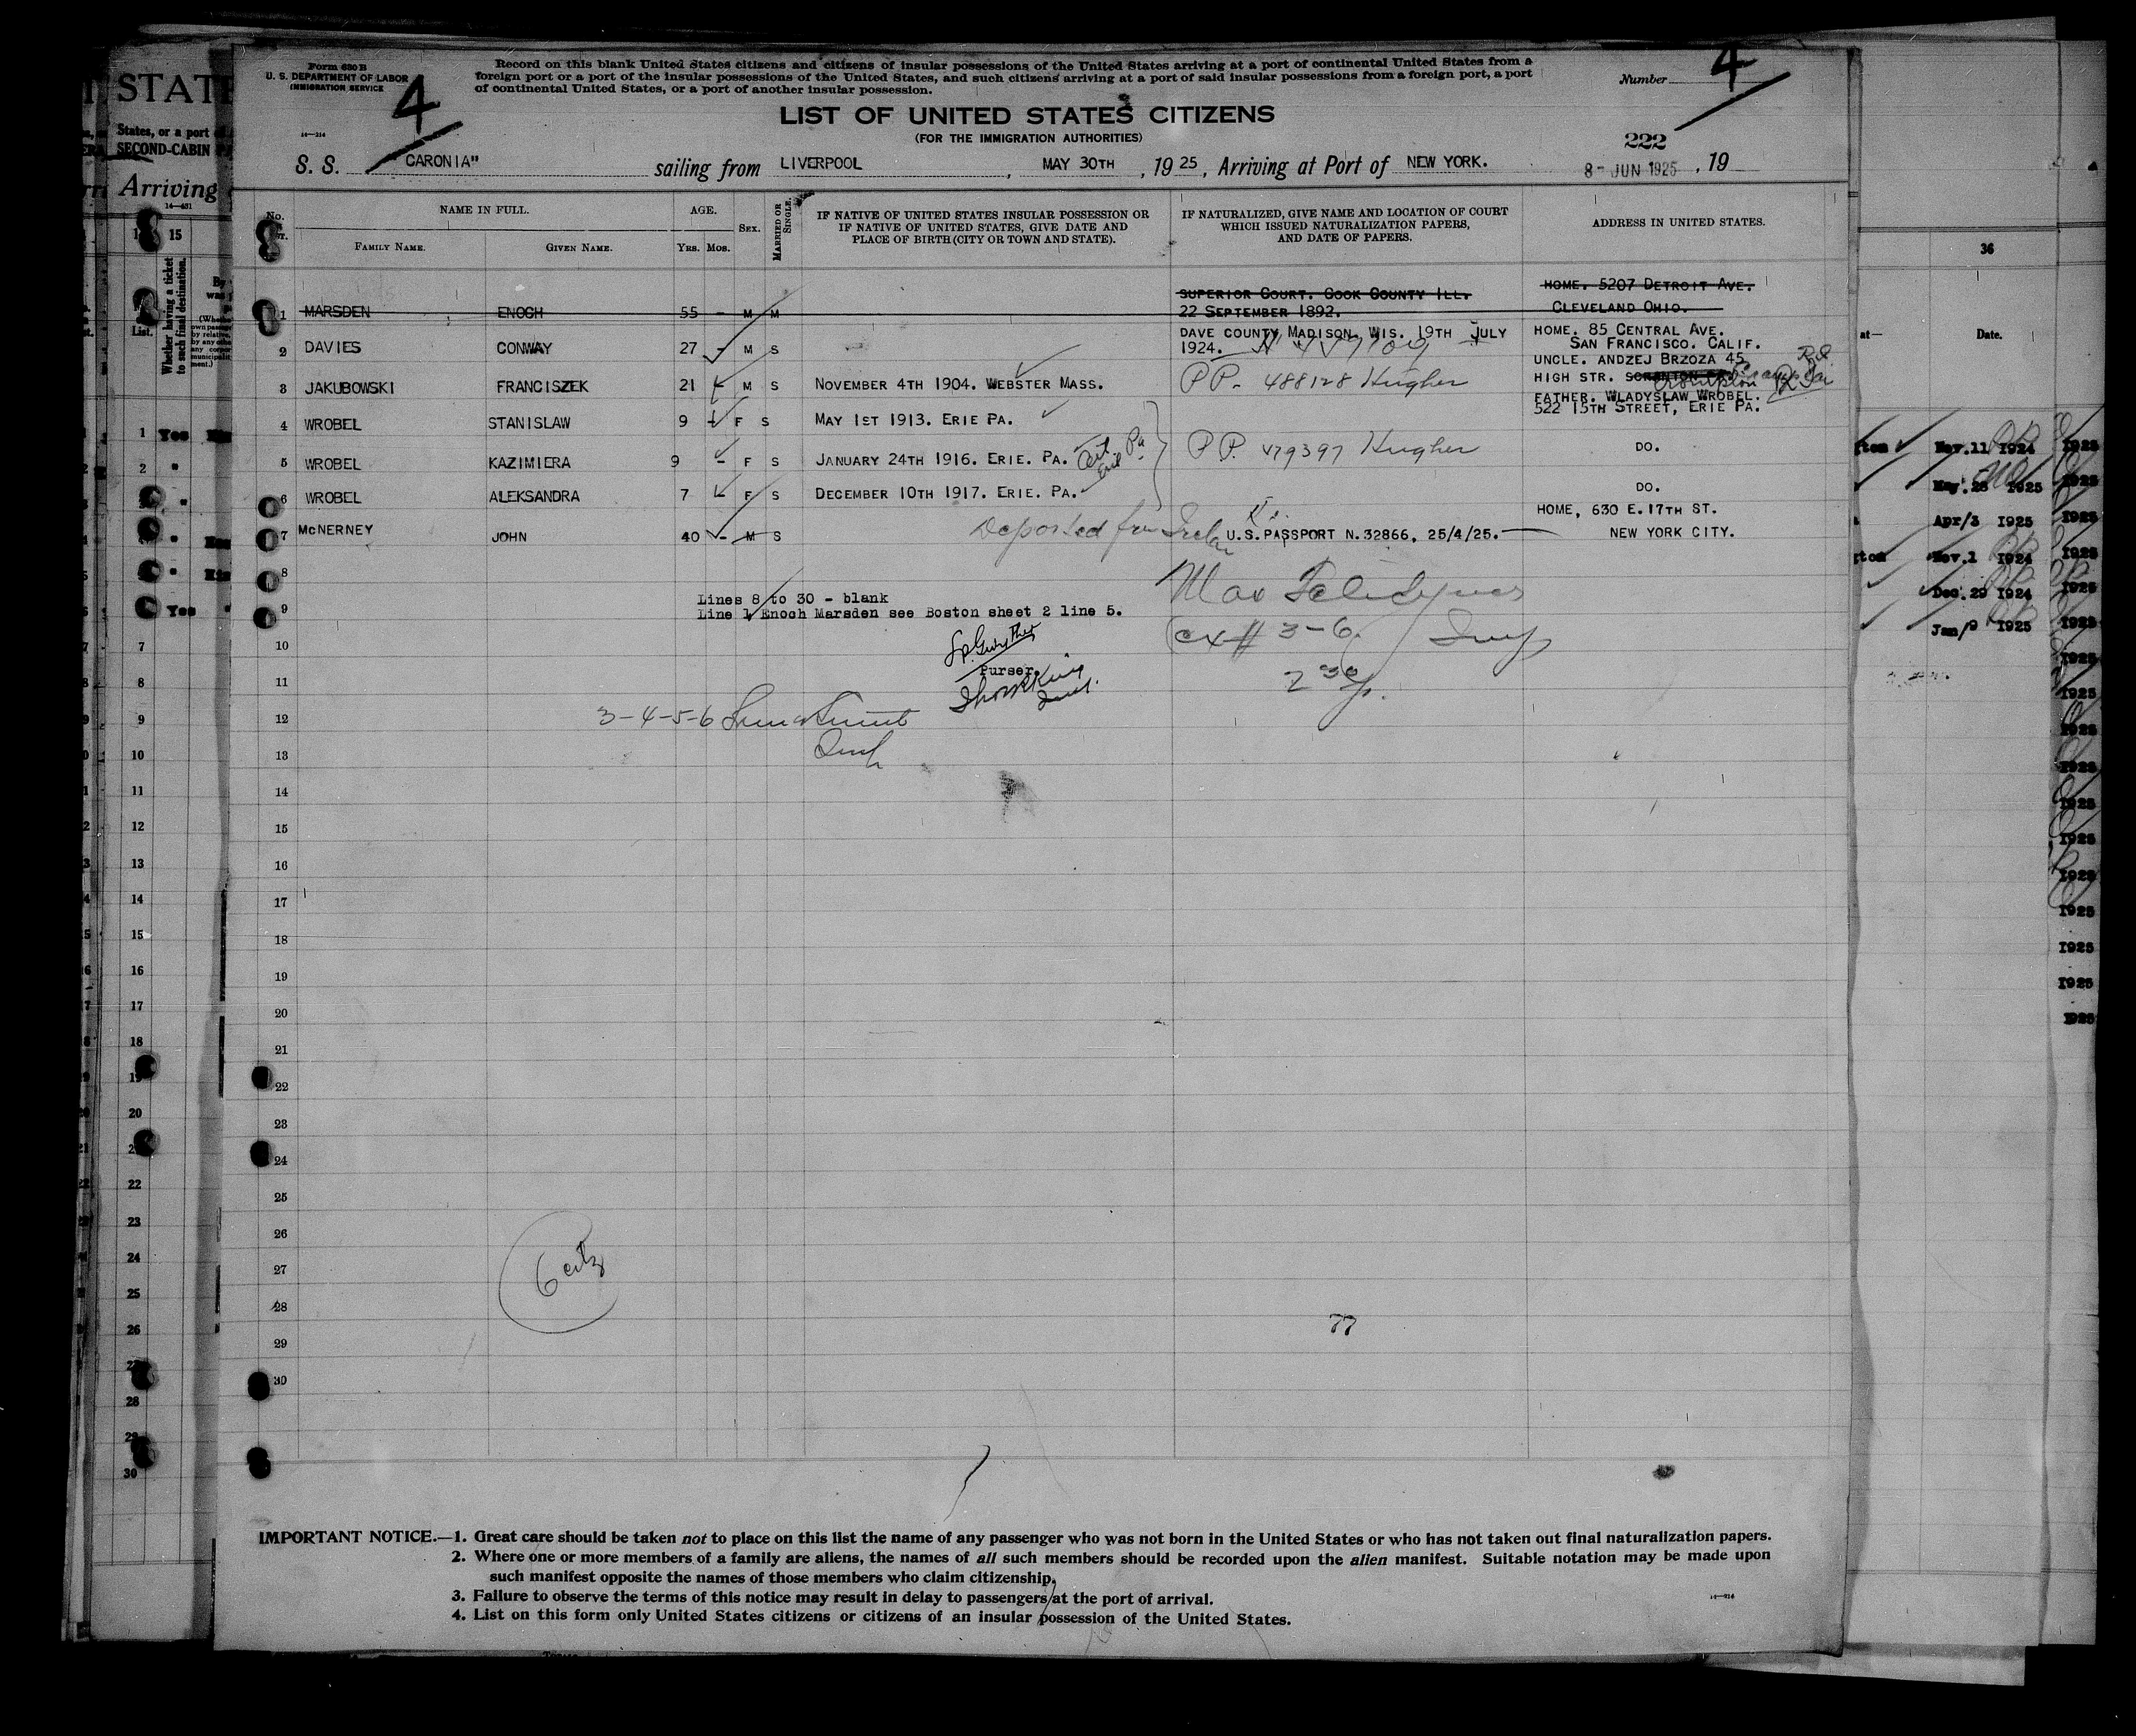 Form 630 B
U. S. DEPARTMENT OF LABOR
IMMIGRATION SERVICE
4
Record on this blank United States citizens and citizens of insular possessions of the United States arriving at a port of continental United States from a
foreign port or a port of the insular possessions of the United States, and such citizens arriving at a port of said insular possessions from a foreign port, a port
of continental United States, or a port of another insular possession.
Number 4
LIST OF UNITED STATES CITIZENS
(FOR THE IMMIGRATION AUTHORITIES)
14—214
222
S. S. CARONIA" sailing from LIVERPOOL, MAY 30TH, 1925, Arriving at Port of NEW YORK. 8 - JUN 1925, 19
No.
NAME IN FULL.
FAMILY NAME.
GIVEN NAME.
AGE.
YRS. MOS.
SEX.
MARRIED OR SINGLE.
IF NATIVE OF UNITED STATES INSULAR POSSESSION OR
IF NATIVE OF UNITED STATES, GIVE DATE AND
PLACE OF BIRTH (CITY OR TOWN AND STATE).
IF NATURALIZED, GIVE NAME AND LOCATION OF COURT
WHICH ISSUED NATURALIZATION PAPERS,
AND DATE OF PAPERS.
ADDRESS IN UNITED STATES.
SUPERIOR COURT. COOK COUNTY ILL. HOME. 5207 DETROIT AVE.
1 MARSDEN ENOCH 55 - M M 22 SEPTEMBER 1892. CLEVELAND OHIO.
DAVE COUNTY MADISON. WIS. 19TH JULY HOME. 85 CENTRAL AVE.
2 DAVIES CONWAY 27 - M S 1924. SAN FRANCISCO. CALIF.
UNCLE. ANDZEJ BRZOZA 45
3 JAKUBOWSKI FRANCISZEK 21 - M S NOVEMBER 4TH 1904. WEBSTER MASS. PP. 488128 Hugher HIGH STR.
FATHER. WLADYSLAW WROBEL.
4 WROBEL STANISLAW 9 - F S MAY 1ST 1913. ERIE PA. 522 15TH STREET, ERIE PA.
5 WROBEL KAZIMIERA 9 - F S JANUARY 24TH 1916. ERIE. PA. PP. 479397 Hugher DO.
6 WROBEL ALEKSANDRA 7 - F S DECEMBER 10TH 1917. ERIE. PA. DO.
HOME, 630 E. 17TH ST.
7 MCNERNEY JOHN 40 - M S Deported from U.S. PASSPORT N.32866, 25/4/25. NEW YORK CITY.
8
Lines 8 to 30 - blank
9
Line 1 Enoch Marsden see Boston sheet 2 line 5.
Max
ex # 3-6.
10
Purser
11
2 30 p.
12
3-4-5-6
13
14
15
16
17
18
19
20
21
22
23
24
25
26
6 citz
27
28
77
29
30
IMPORTANT NOTICE.—1. Great care should be taken not to place on this list the name of any passenger who was not born in the United States or who has not taken out final naturalization papers.
2. Where one or more members of a family are aliens, the names of all such members should be recorded upon the alien manifest. Suitable notation may be made upon
such manifest opposite the names of those members who claim citizenship.
3. Failure to observe the terms of this notice may result in delay to passengers at the port of arrival.
4. List on this form only United States citizens or citizens of an insular possession of the United States.
14—214
STAT
States, or a port
SECOND-CABIN
Arriving
15
Whether having a ticket to such final destination.
List.
1 Yes
2 "
Yes
7
8
9
10
11
12
13
14
15
16
17
18
20
22
23
24
25
26
28
30
36
Date.
Nov.11 1924
May.28 1925
Apr/3 1925
Nov.1 1924
Dec.29 1924
Jan/9 1925